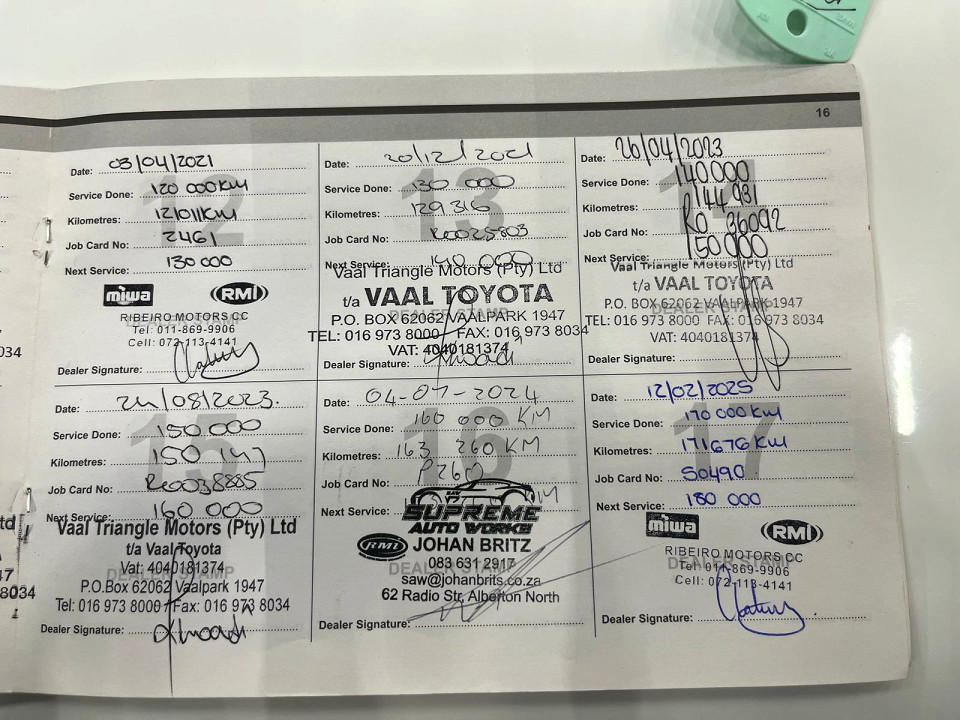 16
12
Date: 03/04/2021
Service Done: 120 000KM
Kilometres: 121011KM
Job Card No: 2461
Next Service: 130 000
miwa RMI
RIBEIRO MOTORS CC
DEALER STAMP
Tel: 011-869-9906
Cell: 072-113-4141
Dealer Signature:
13
Date: 20/12/2021
Service Done: 130 000
Kilometres: 129316
Job Card No: Ro025803
Next Service: 140 000
Vaal Triangle Motors (Pty) Ltd
t/a VAAL TOYOTA
DEALER STAMP
P.O. BOX 62062 VAALPARK 1947
TEL: 016 973 8000 FAX: 016 973 8034
VAT: 4040181374
Date: 26/04/2023
Service Done: 140.000
Kilometres: 144 931
Job Card No: Ro 36092
Next Service: 150000
Vaal Triangle Motors (Pty) Ltd
t/a VAAL TOYOTA
DEALER STAMP
P.O. BOX 62062 VAALPARK 1947
TEL: 016 973 8000 FAX: 016 973 8034
VAT: 4040181374
Dealer Signature:
15
Date: 24/08/2023.
Service Done: 150.000
Kilometres: 150 147
Job Card No: Ro038885
Next Service: 160 000
Vaal Triangle Motors (Pty) Ltd
t/a Vaal Toyota
Vat: 4040181374
DEALER STAMP
P.O.Box 62062 Vaalpark 1947
Tel: 016 973 8000 Fax: 016 973 8034
Dealer Signature:
16
Date: 04-07-2024
Service Done: 160 000 KM
Kilometres: 163 260 KM
Job Card No: P260
Next Service: KM
SUPREME
AUTO WORKS
RMI JOHAN BRITZ
083 631 2917
DEALER STAMP
saw@johanbrits.co.za
62 Radio Str, Alberton North
Dealer Signature:
17
Date: 12/02/2025
Service Done: 170 000KM
Kilometres: 171676 KM
Job Card No: 50490
Next Service: 180 000
miwa RMI
RIBEIRO MOTORS CC
DEALER STAMP
Tel: 011-869-9906
Cell: 072-113-4141
Dealer Signature:
8034
td
47
8034